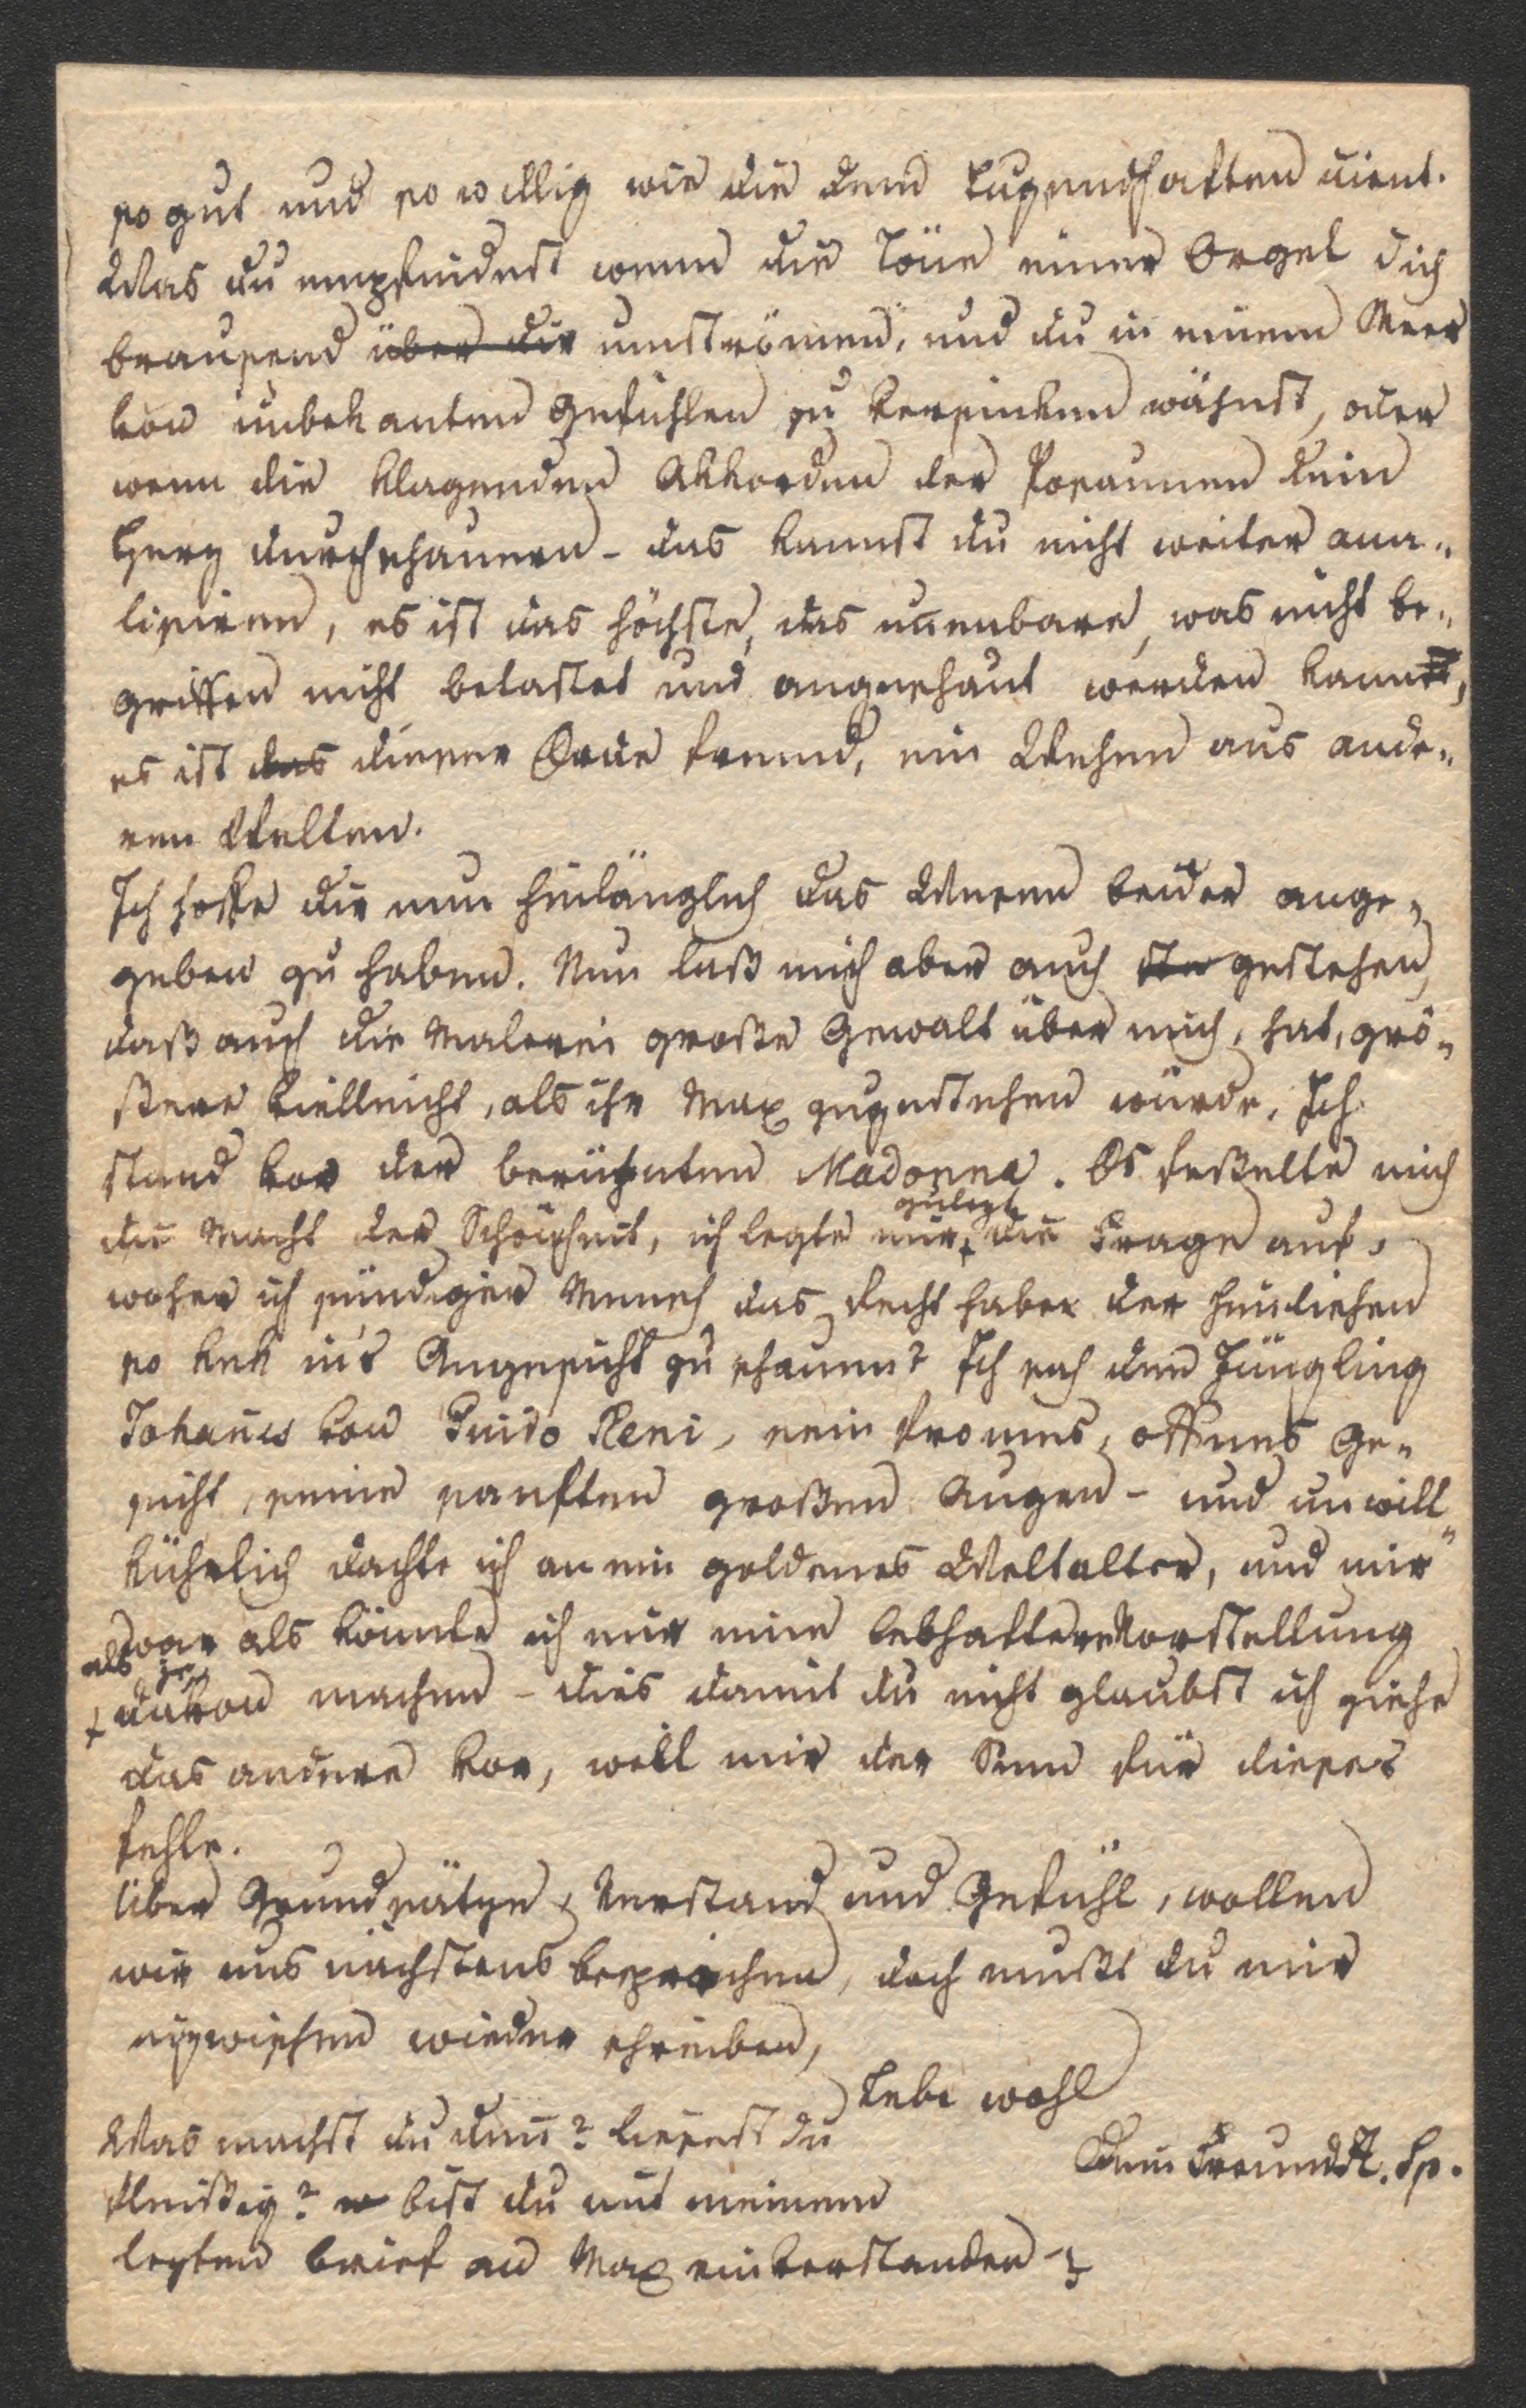 so gut und so willig wie die dem Tugendhaften dient.
Was du empfindest wenn die Töne einer Orgel dich
brausend über dir umströmen, und du in einem Meer
von unbekanten Gefühlen zu versinken wähnst, oder
wenn die klagenden Akkorden der Posaunen dein
Herz durchschauern - das kannst du nicht weiter ana=
lisiren, es ist das höchste, das unenbare, was nicht be=
griffen nicht betastet und angeschaut werden kann,
es ist das dieser Erde fremd, ein Wehen aus ande=
ren Welten.
Ich hoffe dir nun hinlänglich das Wesen beider ange=
geben zu haben. Nun laß mich aber auch ste gestehen,
daß auch die Malerei große Gewalt über mich, hat, grö=
ßere vielleicht, als ihr Max zugestehen würde. Ich
stand vor der berühmten Madonna. Es feßelte mich
zulezt
die Macht der Schönheit, ich legte mir + die Frage auf,
woher ich sündiger Mensch das Recht habe der himlischen
so kek in's Angesicht zu schauen? Ich sah den Jüngling
Johañes von Guido Reni, sein fromes, offenes Ge=
sicht, seine sanften großen Augen - und unwill=
kührlich dachte ich an ein goldenes Weltalter, und mir
war als könnte ich mir eine lebhaftere Vorstellung
als je
+ davon machen - dies damit du nicht glaubst ich ziehe
das andere vor, weil mir der Sinn für dieses
fehle.
Über Grundsätze, Verstand und Gefühl, wollen
wir uns nächstens besprechen, doch mußt du mir
inzwischen wieder schreiben,
Lebe wohl
Was machst du deñ? liesest du
Dein Freund A. Sp.
fleißig? w bist du mit meinem
lezten brief an Max einverstanden -?